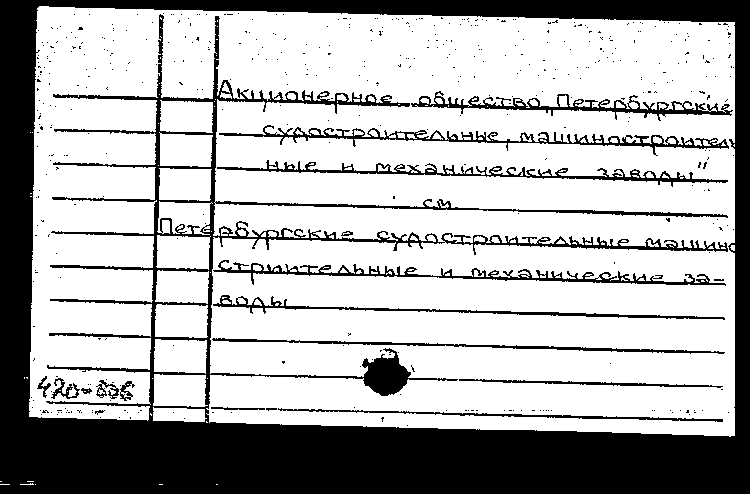 Акционерное общество „Петербургские
судостроительные, машиностроитель
ные и механические заводы"
см
Петербургские судостроительные машино
строительные и механические за-
воды